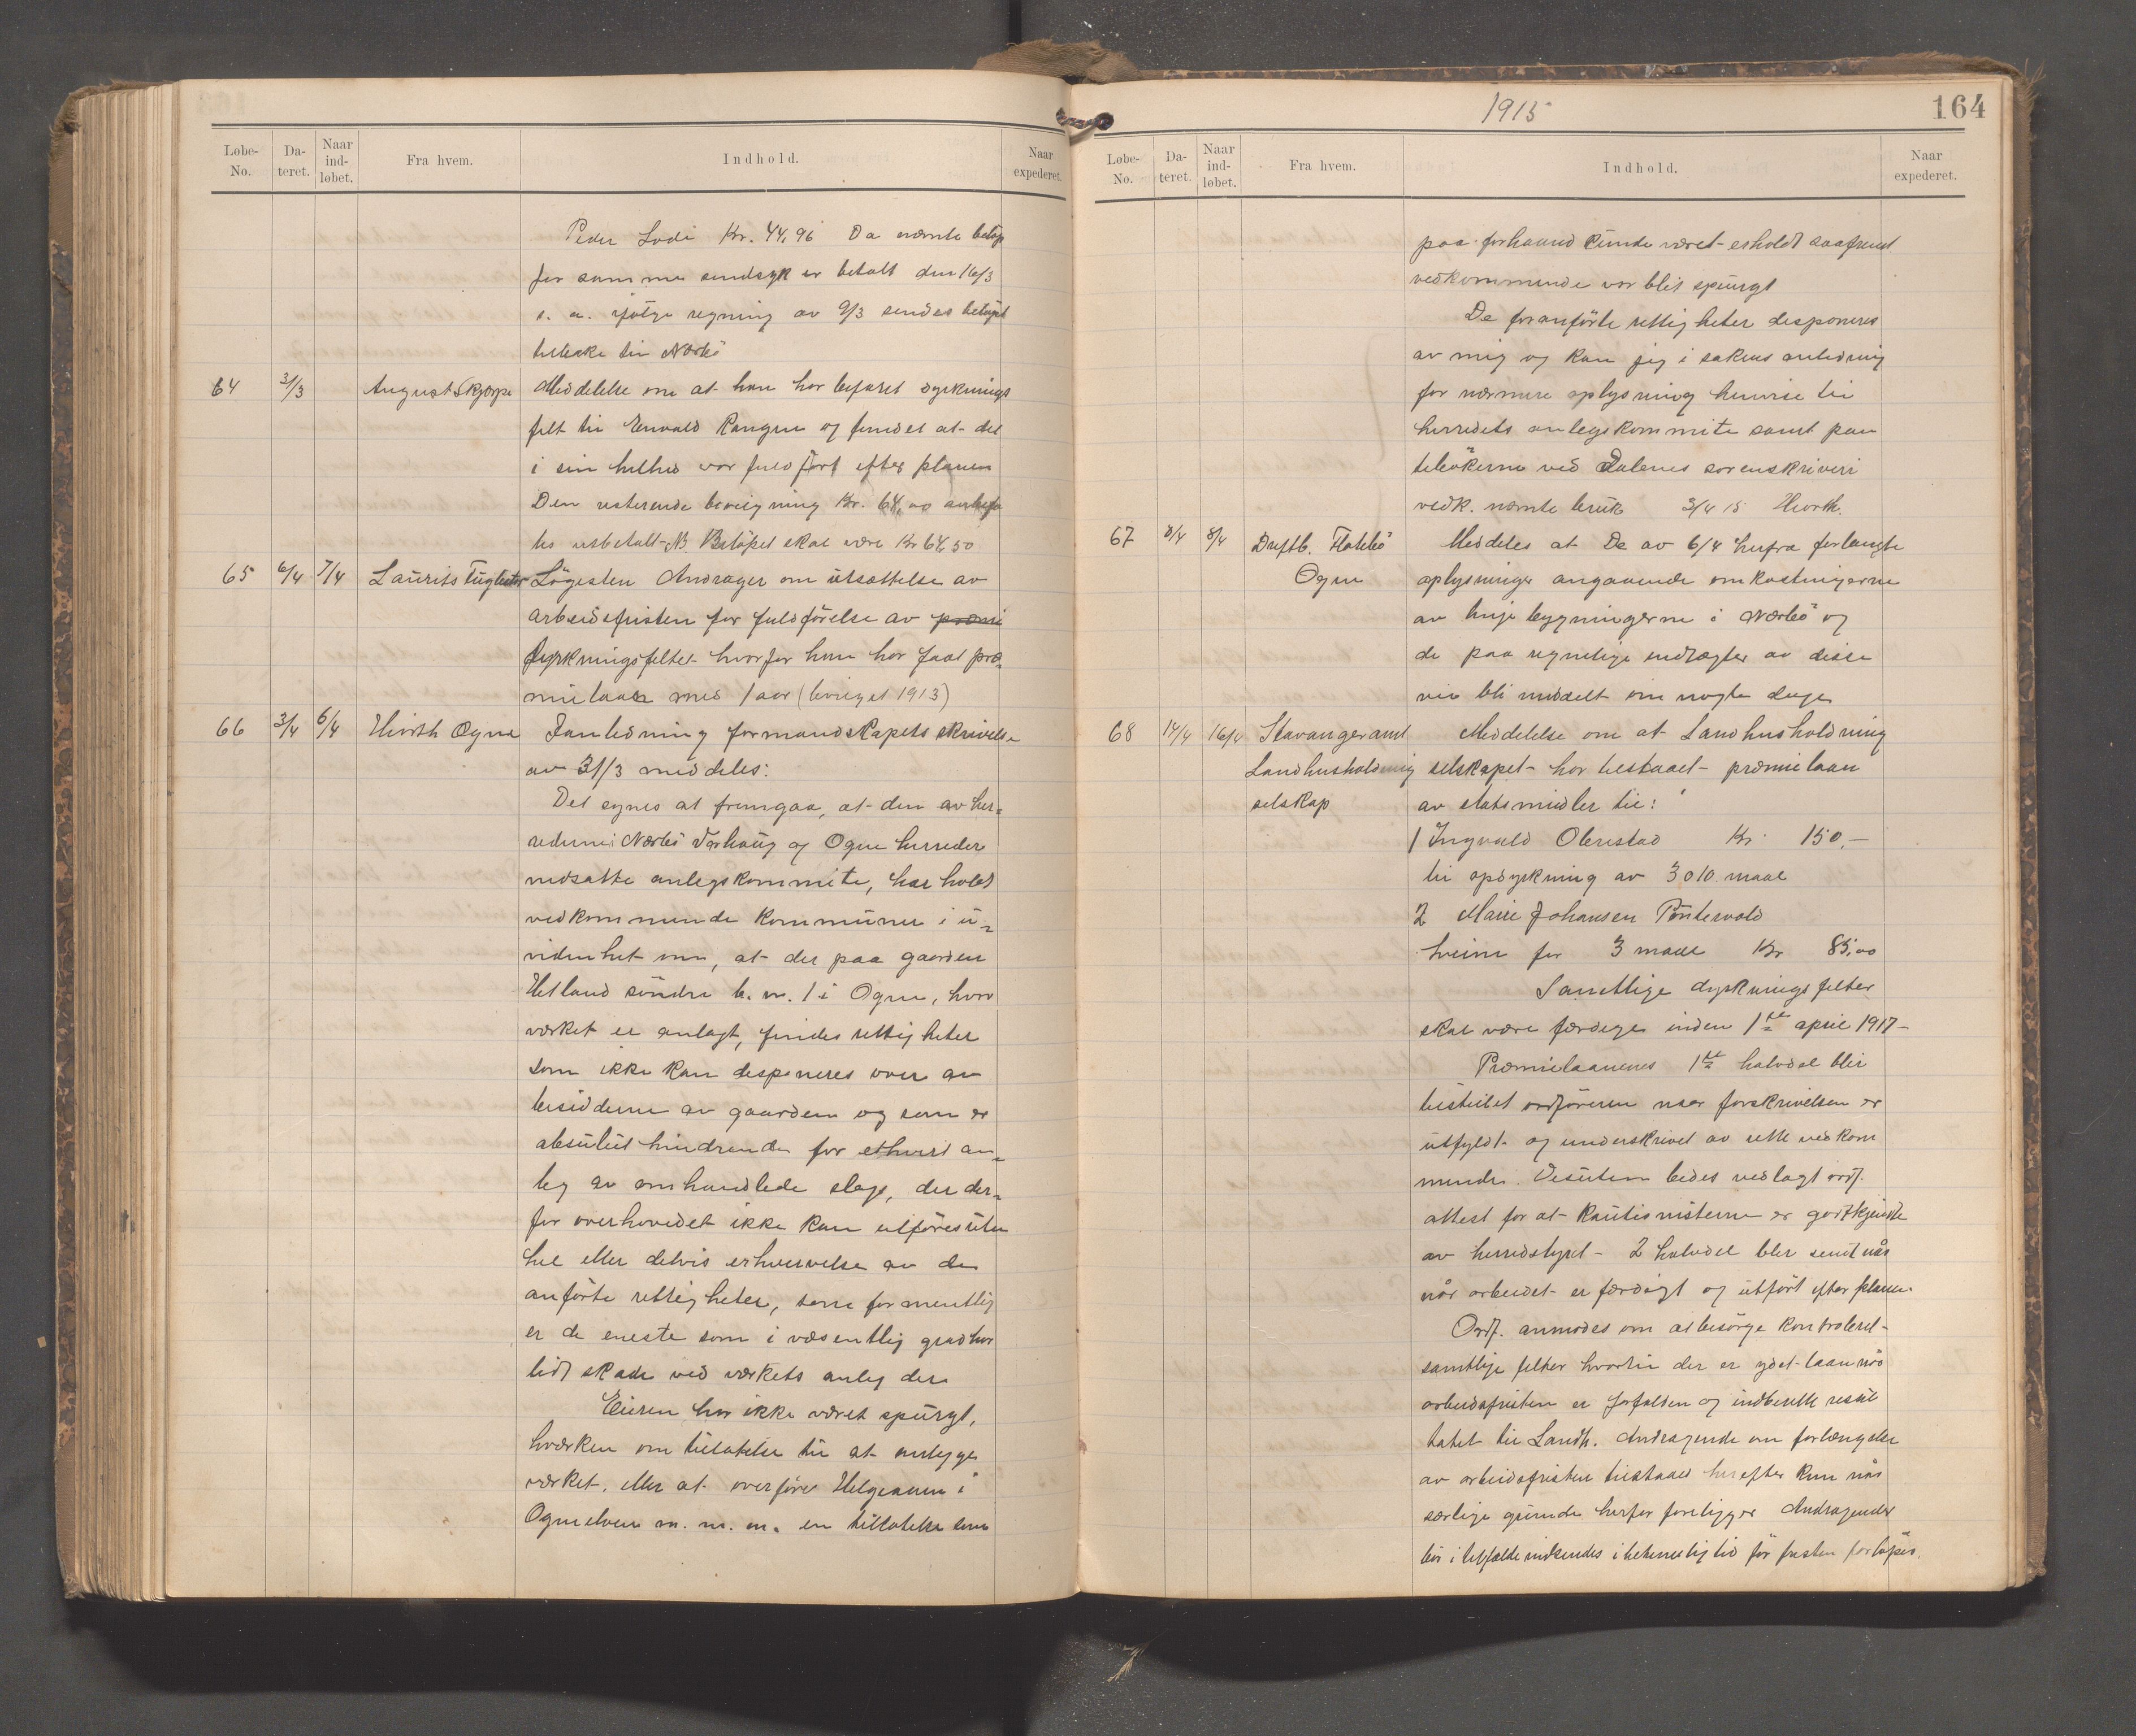 Løbe-No.
Da-teret.
Naar ind-løbet.
Fra hvem.
Indhold.
Naar expederet.
Peder Lodi Kr. 44,96 Da nævnte beløp
for samme sindsyk er betalt den 16/3
s. a. ifølge regning av 9/3 sendes beløpet
tilbake til Nærbö
64 3/3 August Skjærpe Meddelelse om at han har befaret dyrknings
felt til Enwald Rangen og fundet at det
i sin helhed var fuldført efter planen
Den resterende bevilgning Kr. 64,00 anbefa
les utbetalt NB. Beløpet skal være Kr 64,50
65 6/4 7/4 Laurits Fuglestad Lögesten Andrager om utsættelse av
arbeidsfristen for fuldförelse av præmi
dyrkningsfeltet hvorfor han har faat præ-
mielaan med 1 aar (beviget 1913)
66 3/4 6/4 Hiorth Ogna I anledning formandskapets skrivelse
av 31/3 meddeles:
Det synes at fremgaa, at den av her-
rederne: Nærbö Varhaug og Ogne herreder
nedsatte anlegskommite, har holdt
vedkommende kommuner i u-
videnhet om, at der paa gaarden
Hetland söndre b. nr. 1 i Ogne, hvor
værket er anlagt, findes rettigheter
som ikke kan desponeres over av
besidderne av gaarden og som er
absulut hindrende for ethvert an-
leg av omhandlede slags, der der-
for overhovedet ikke kan utföres uten
hel eller delvis erhvervelse av de
anförte rettigheter, som formentlig
er de eneste som i væsentlig grad har
lidt skade ved værkets anleg der
Eieren har ikke været spurgt,
hværken om tillatelse til at anlegge
værket, eller at overföre Helgeaaen i
Ognaelven m. m. m. en tillatelse som
1915
164
Løbe-No.
Da-teret.
Naar ind-løbet.
Fra hvem.
Indhold.
Naar expederet.
paa forhaand kunde været erholdt saafremt
vedkommende var blit spurgt
De foranförte rettigheter desponeres
av mig og kan jeg i sakens anledning
for nærmere oplysning henvise til
herredets anlegskommite samt pan
tebökerne ved Dalenes sorenskriveri
vedk. nævnte bruk 3/4 15 Hiorth.
67 8/4 8/4 Driftb. Flakkö
Ogne
Meddeles at De av 6/4 herfra forlangte
oplysninger angaaende omkostningerne
av linjebygningerne i Nærbö og
de paa regnelige indtægter av disse
vil bli meddelt om nogle dage
68 14/4 16/4 Stavanger amt
Landhusholdning
selskap
Meddelelse om at Landhusholdning
selskapet har tilstaaet præmielaan
av statsmidler til:
1 Ingvald Obrestad Kr. 150,-
til opdyrkning av 3010 maal
2 Marie Johansen Pöntervold
heime for 3 maal Kr 85,00
Samtlige dyrkningsfelter
skal være færdige inden 1ste april 1917-
Præmielaanenes 1ste halvdel blir
tilstillet ordföreren naar forskrivelsen er
utfyldt og underskrivet av rette vedkom
mende. Desuten bedes vedlagt ordf.
attest for at kautionisterne er godkjendte
av herredstyret - 2 halvdel blir sendt når
når arbeidet er færdigt og utfört efter planen
Ordf. anmodes om at besörge kontroleret
samtlige felter hvortil der er ydet laan når
arbeidsfristen er forfalden og indberette resul
tatet til Landh. Andragende om forlængelse
av arbeidsfristen tilstaaes herefter kun når
særlige grunde herfor foreligger Andragender
bör i tilfælde indsendes i betimelig tid för fristen forlöper.